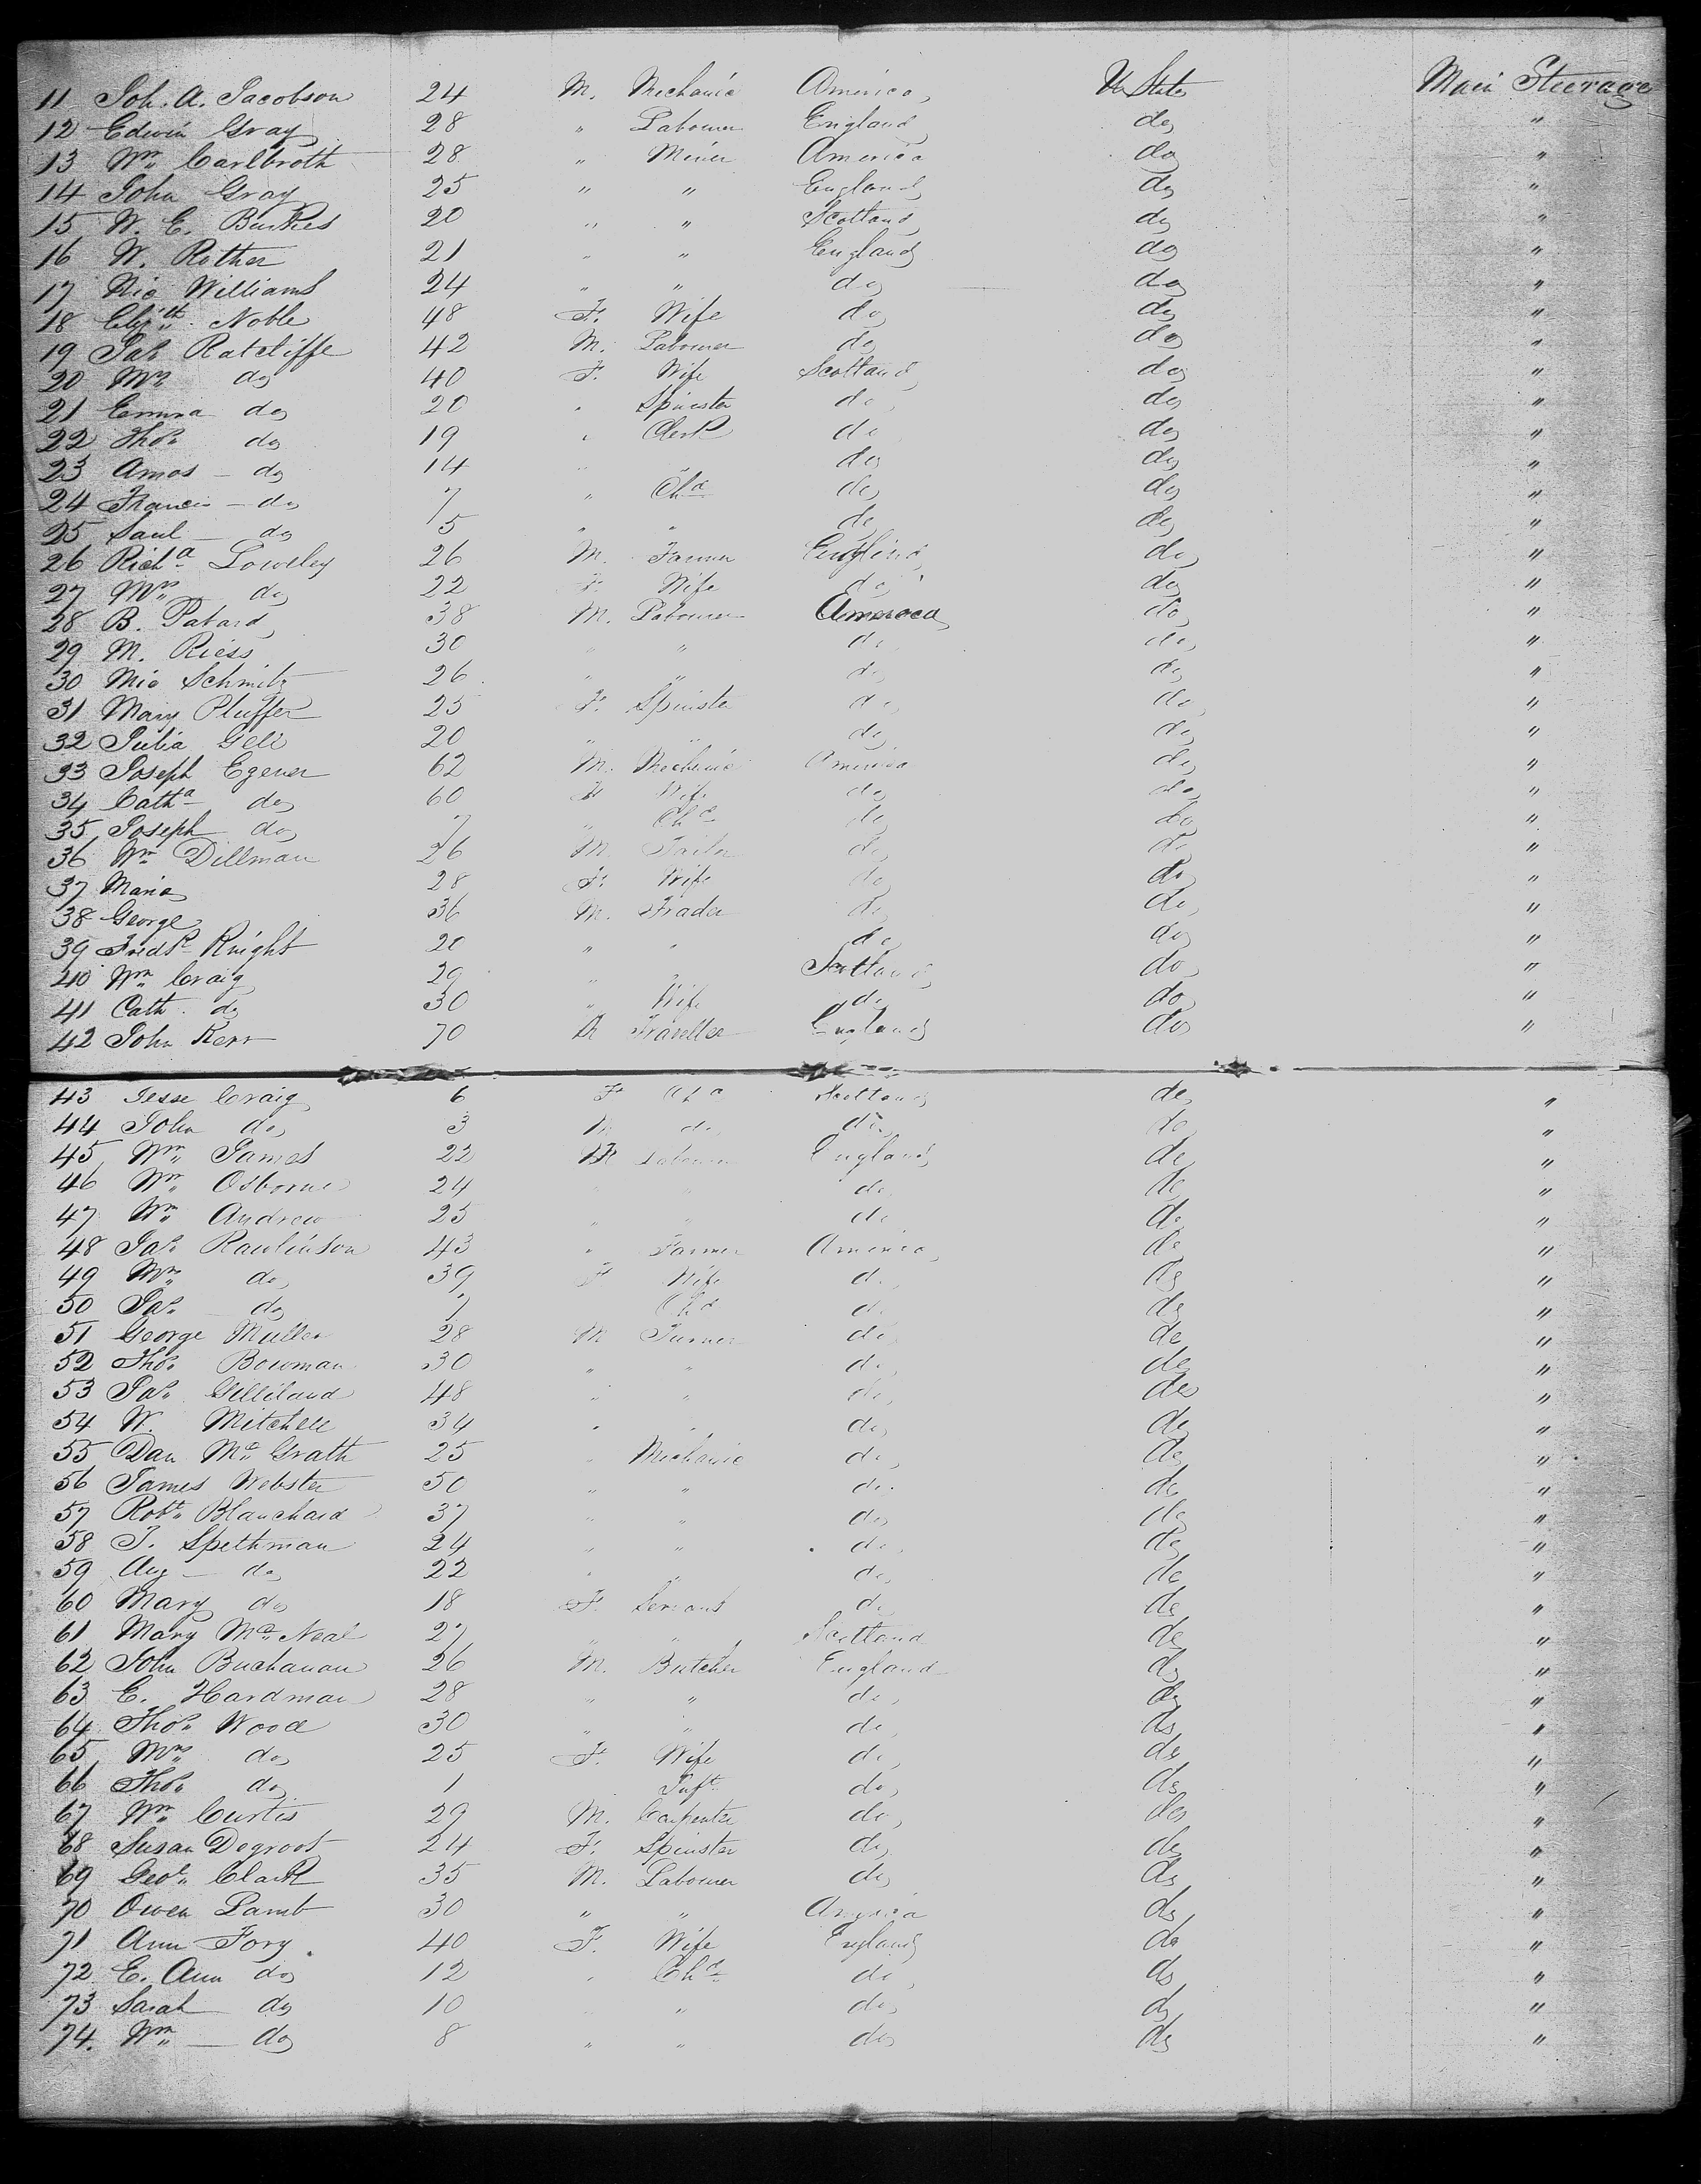 11 Joh. A. Jacobson 24 M. Mechanic America U States Main Steerage
12 Edwin Gray 28 " Labourer England do "
13 Wm Carlbroth 28 " Miner America do "
14 John Gray 25 " " England do "
15 W. E. 20 " " Scotland do "
16 W. Rother 21 " " England do "
17 Nic Williams 24 " " do do "
18 Elizth Noble 48 F. Wife do do "
19 Jas Ratcliffe 42 M. Labourer do do "
20 Mrs do 40 F. Wife Scotland do "
21 Emma do 20 " Spinster do do "
22 Thos do 19 " Clerk do do "
23 Amos — do 14 " " do do "
24 Francis — do 7 " Chd do do "
25 Saul — do 5 " " do do "
26 Richd Lowsley 26 M. Farmer England do "
27 Mrs do 22 F. Wife do do "
28 B. Patard 38 M. Labourer Amereca do "
29 M. Riess 30 " " do do "
30 Nic Schmitz 26 " " do do "
31 Mary Pluffer 25 F. Spinster do do "
32 Julia Gell 20 " " do do "
33 Joseph Egener 62 M. Mechanic America do "
34 Catha do 60 F Wife do do "
35 Joseph do 7 " Chd do do "
36 Wm Dillman 26 M. Tailor do do "
37 Maria 28 F. Wife do do "
38 George 36 M. Trader do do "
39 Fredk Knight 20 " " do do "
40 Wm Craig 29 " " Scotland do "
41 Cath. do 30 " Wife do do "
42 John Kerr 70 M Traveller England do "
43 Jesse Craig 6 F Chd Scotland do "
44 John do 3 M do do do "
45 Wm James 22 M Labourer England do "
46 Wm Osborne 24 " " do do "
47 Wm Andrew 25 " " do do "
48 Jas Rawlinson 43 " Farmer America do "
49 Mrs do 39 F Wife do do "
50 Jas do 7 Chd do do "
51 George Muller 28 M Turner do do "
52 Thos Bowman 30 " " do do "
53 Jas Gilliland 48 " " do do "
54 W. Mitchell 34 " " do do "
55 Dan McGrath 25 " Mechanic do do "
56 James Webster 50 " " do do "
57 Robt Blanchard 37 " " do do "
58 J. Spethman 24 " " do do "
59 Aug — do 22 " " do do "
60 Mary do 18 F. Servant do do "
61 Mary McNeal 27 " " Scotland do "
62 John Buchanan 26 M. Butcher England do "
63 E. Hardman 28 " " do do "
64 Thos Wood 30 " " do do "
65 Mrs do 25 F. Wife do do "
66 Thos do 1 Inft do do "
67 Wm Curtis 29 M. Carpenter do do "
68 Susan Degroot 24 F. Spinster do do "
69 Geo. Clark 35 M. Labourer do do "
70 Owen Lamb 30 " " America do "
71 Ann Fory 40 F. Wife England do "
72 E. Ann do 12 " Chd do do "
73 Sarah do 10 " " do do "
74. Wm — do 8 " " do do "